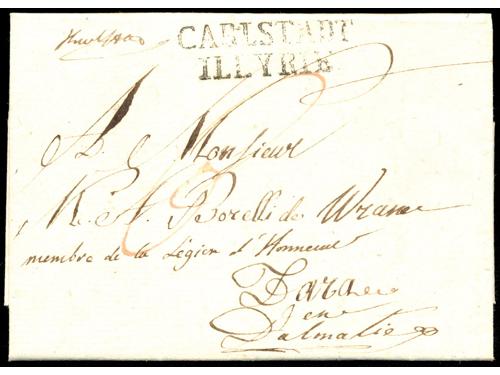 CARLSTADT
ILLYRIE
A Monsieur
Borelli de Wrana
membre de la Légion d'Honneur
Zara
en
Dalmatie